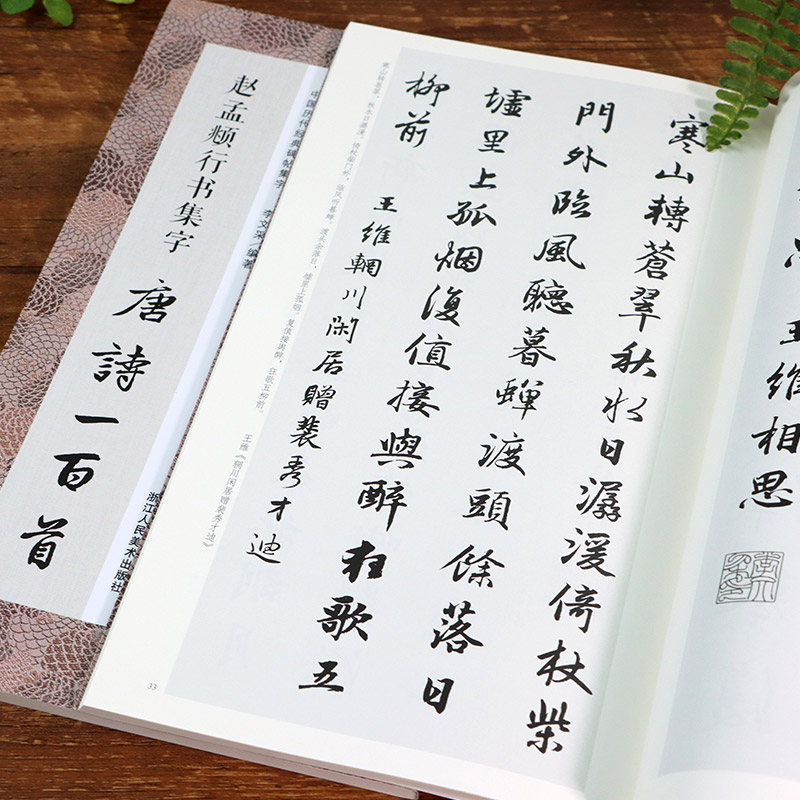 王維相思
寒山轉蒼翠秋水日潺湲倚杖柴
門外臨風聽暮蟬渡頭餘落日
墟里上孤烟復值接輿醉狂歌五
柳前
王維輞川閑居贈裴秀才迪
寒山转苍翠，秋水日潺湲。倚杖柴门外，临风听暮蝉。渡头余落日，墟里上孤烟。复值接舆醉，狂歌五柳前。
王维《辋川闲居赠裴秀才迪》
33
中国历代经典碑帖集字
李文采 编著
浙江人民美术出版社
赵孟頫行书集字
唐詩一百首